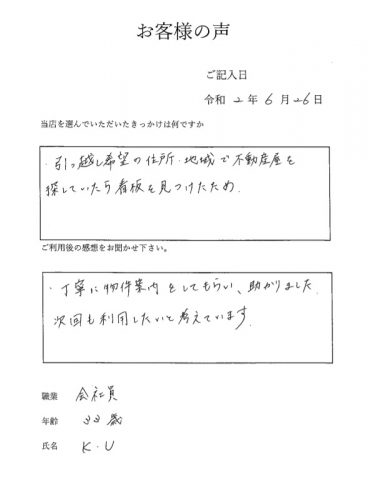 お客様の声
ご記入日
令和 2 年 6 月 26 日
当店を選んでいただいたきっかけは何ですか
・引っ越し希望の住所・地域で不動産屋を
探していたら看板を見つけたため.
ご利用後の感想をお聞かせ下さい。
・丁寧に物件案内をしてもらい、助かりました.
次回も利用したいと考えています.
職業 会社員
年齢 33歳
氏名 K・U